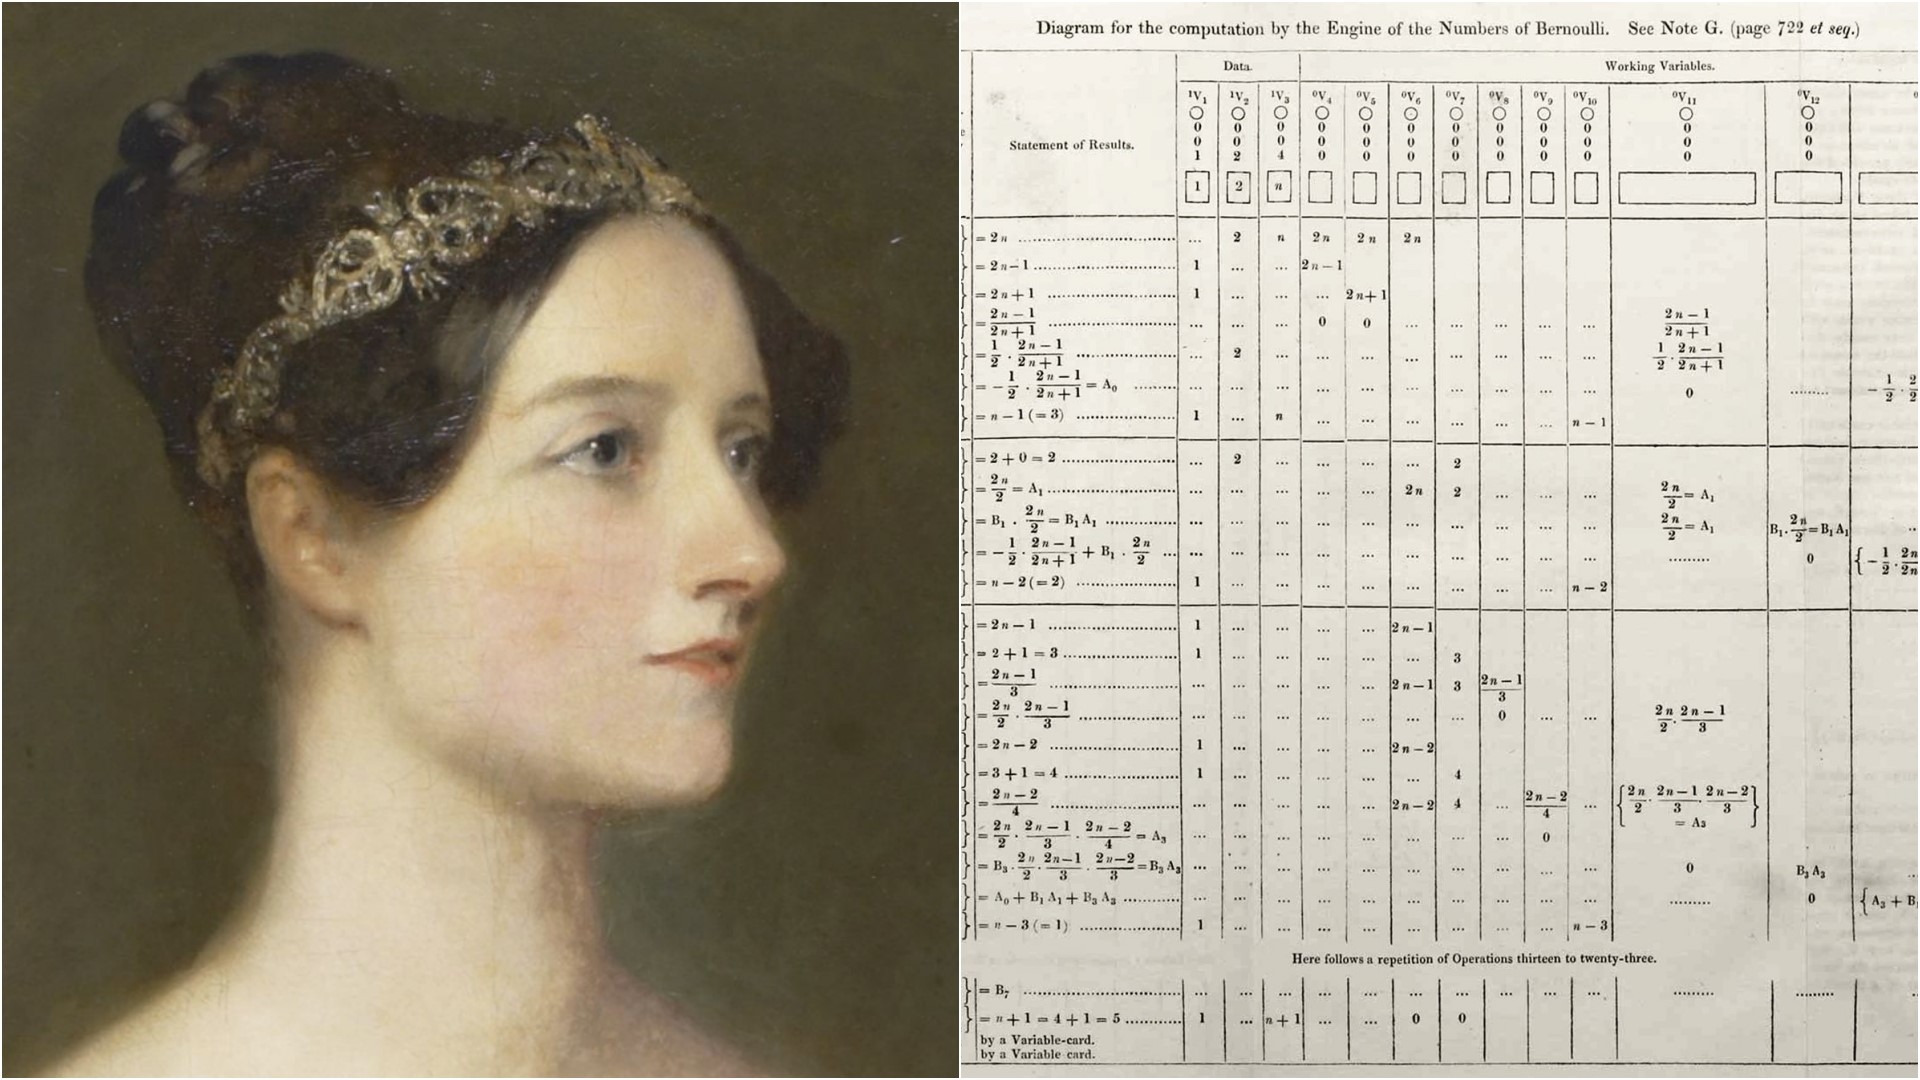 Diagram for the computation by the Engine of the Numbers of Bernoulli. See Note G. (page 722 et seq.)
Data. Working Variables.
Statement of Results.
¹V₁ ¹V₂ ¹V₃ ⁰V₄ ⁰V₅ ⁰V₆ ⁰V₇ ⁰V₈ ⁰V₉ ⁰V₁₀ ⁰V₁₁ ⁰V₁₂
○ ○ ○ ○ ○ ○ ○ ○ ○ ○ ○ ○
0 0 0 0 0 0 0 0 0 0 0 0
0 0 0 0 0 0 0 0 0 0 0 0
1 2 4 0 0 0 0 0 0 0 0 0
1 2 n
= 2n ........ ... 2 n 2n 2n 2n
= 2n−1 ........ 1 ... ... 2n−1
= 2n+1 ........ 1 ... ... ... 2n+1
= (2n−1)/(2n+1) ........ ... ... ... 0 0 ... ... ... ... ... (2n−1)/(2n+1)
= 1/2 · (2n−1)/(2n+1) ........ ... 2 ... ... ... ... ... ... ... ... 1/2 · (2n−1)/(2n+1)
= −1/2 · (2n−1)/(2n+1) = A₀ ........ ... ... ... ... ... ... ... ... ... ... 0 ........ −1/2 · 2
= n−1 (= 3) ........ 1 ... n ... ... ... ... ... ... n−1
= 2+0 = 2 ........ ... 2 ... ... ... ... 2
= 2n/2 = A₁ ........ ... ... ... ... ... 2n 2 ... ... ... 2n/2 = A₁
= B₁ · 2n/2 = B₁ A₁ ........ ... ... ... ... ... ... ... ... ... ... 2n/2 = A₁ B₁ · 2n/2 = B₁ A₁ ..
= −1/2 · (2n−1)/(2n+1) + B₁ · 2n/2 ... ... ... ... ... ... ... ... ... ... ... ........ 0 { −1/2 · 2n/2n
= n−2 (= 2) ........ 1 ... ... ... ... ... ... ... ... n−2
= 2n−1 ........ 1 ... ... ... ... 2n−1
= 2+1 = 3 ........ 1 ... ... ... ... ... 3
= (2n−1)/3 ........ ... ... ... ... ... 2n−1 3 (2n−1)/3
= 2n/2 · (2n−1)/3 ........ ... ... ... ... ... ... ... 0 ... ... 2n/2 · (2n−1)/3
= 2n−2 ........ 1 ... ... ... ... 2n−2
= 3+1 = 4 ........ 1 ... ... ... ... ... 4
= (2n−2)/4 ........ ... ... ... ... ... 2n−2 4 ... (2n−2)/4 ... { 2n/2 · (2n−1)/3 · (2n−2)/3 = A₃ }
= 2n/2 · (2n−1)/3 · (2n−2)/4 = A₃ ... ... ... ... ... ... ... ... 0
= B₃ · 2n/2 · (2n−1)/3 · (2n−2)/3 = B₃ A₃ ... ... ... ... ... ... ... ... ... ... 0 B₃ A₃ ..
= A₀ + B₁ A₁ + B₃ A₃ ........ ... ... ... ... ... ... ... ... ... ... ........ 0 { A₃ + B
= n−3 (= 1) ........ 1 ... ... ... ... ... ... ... ... n−3
Here follows a repetition of Operations thirteen to twenty-three.
= B₇ ........ ... ... ... ... ... ... ... ... ... ... ........ ........
= n+1 = 4+1 = 5 ........ 1 ... n+1 ... ... 0 0
by a Variable-card.
by a Variable card.